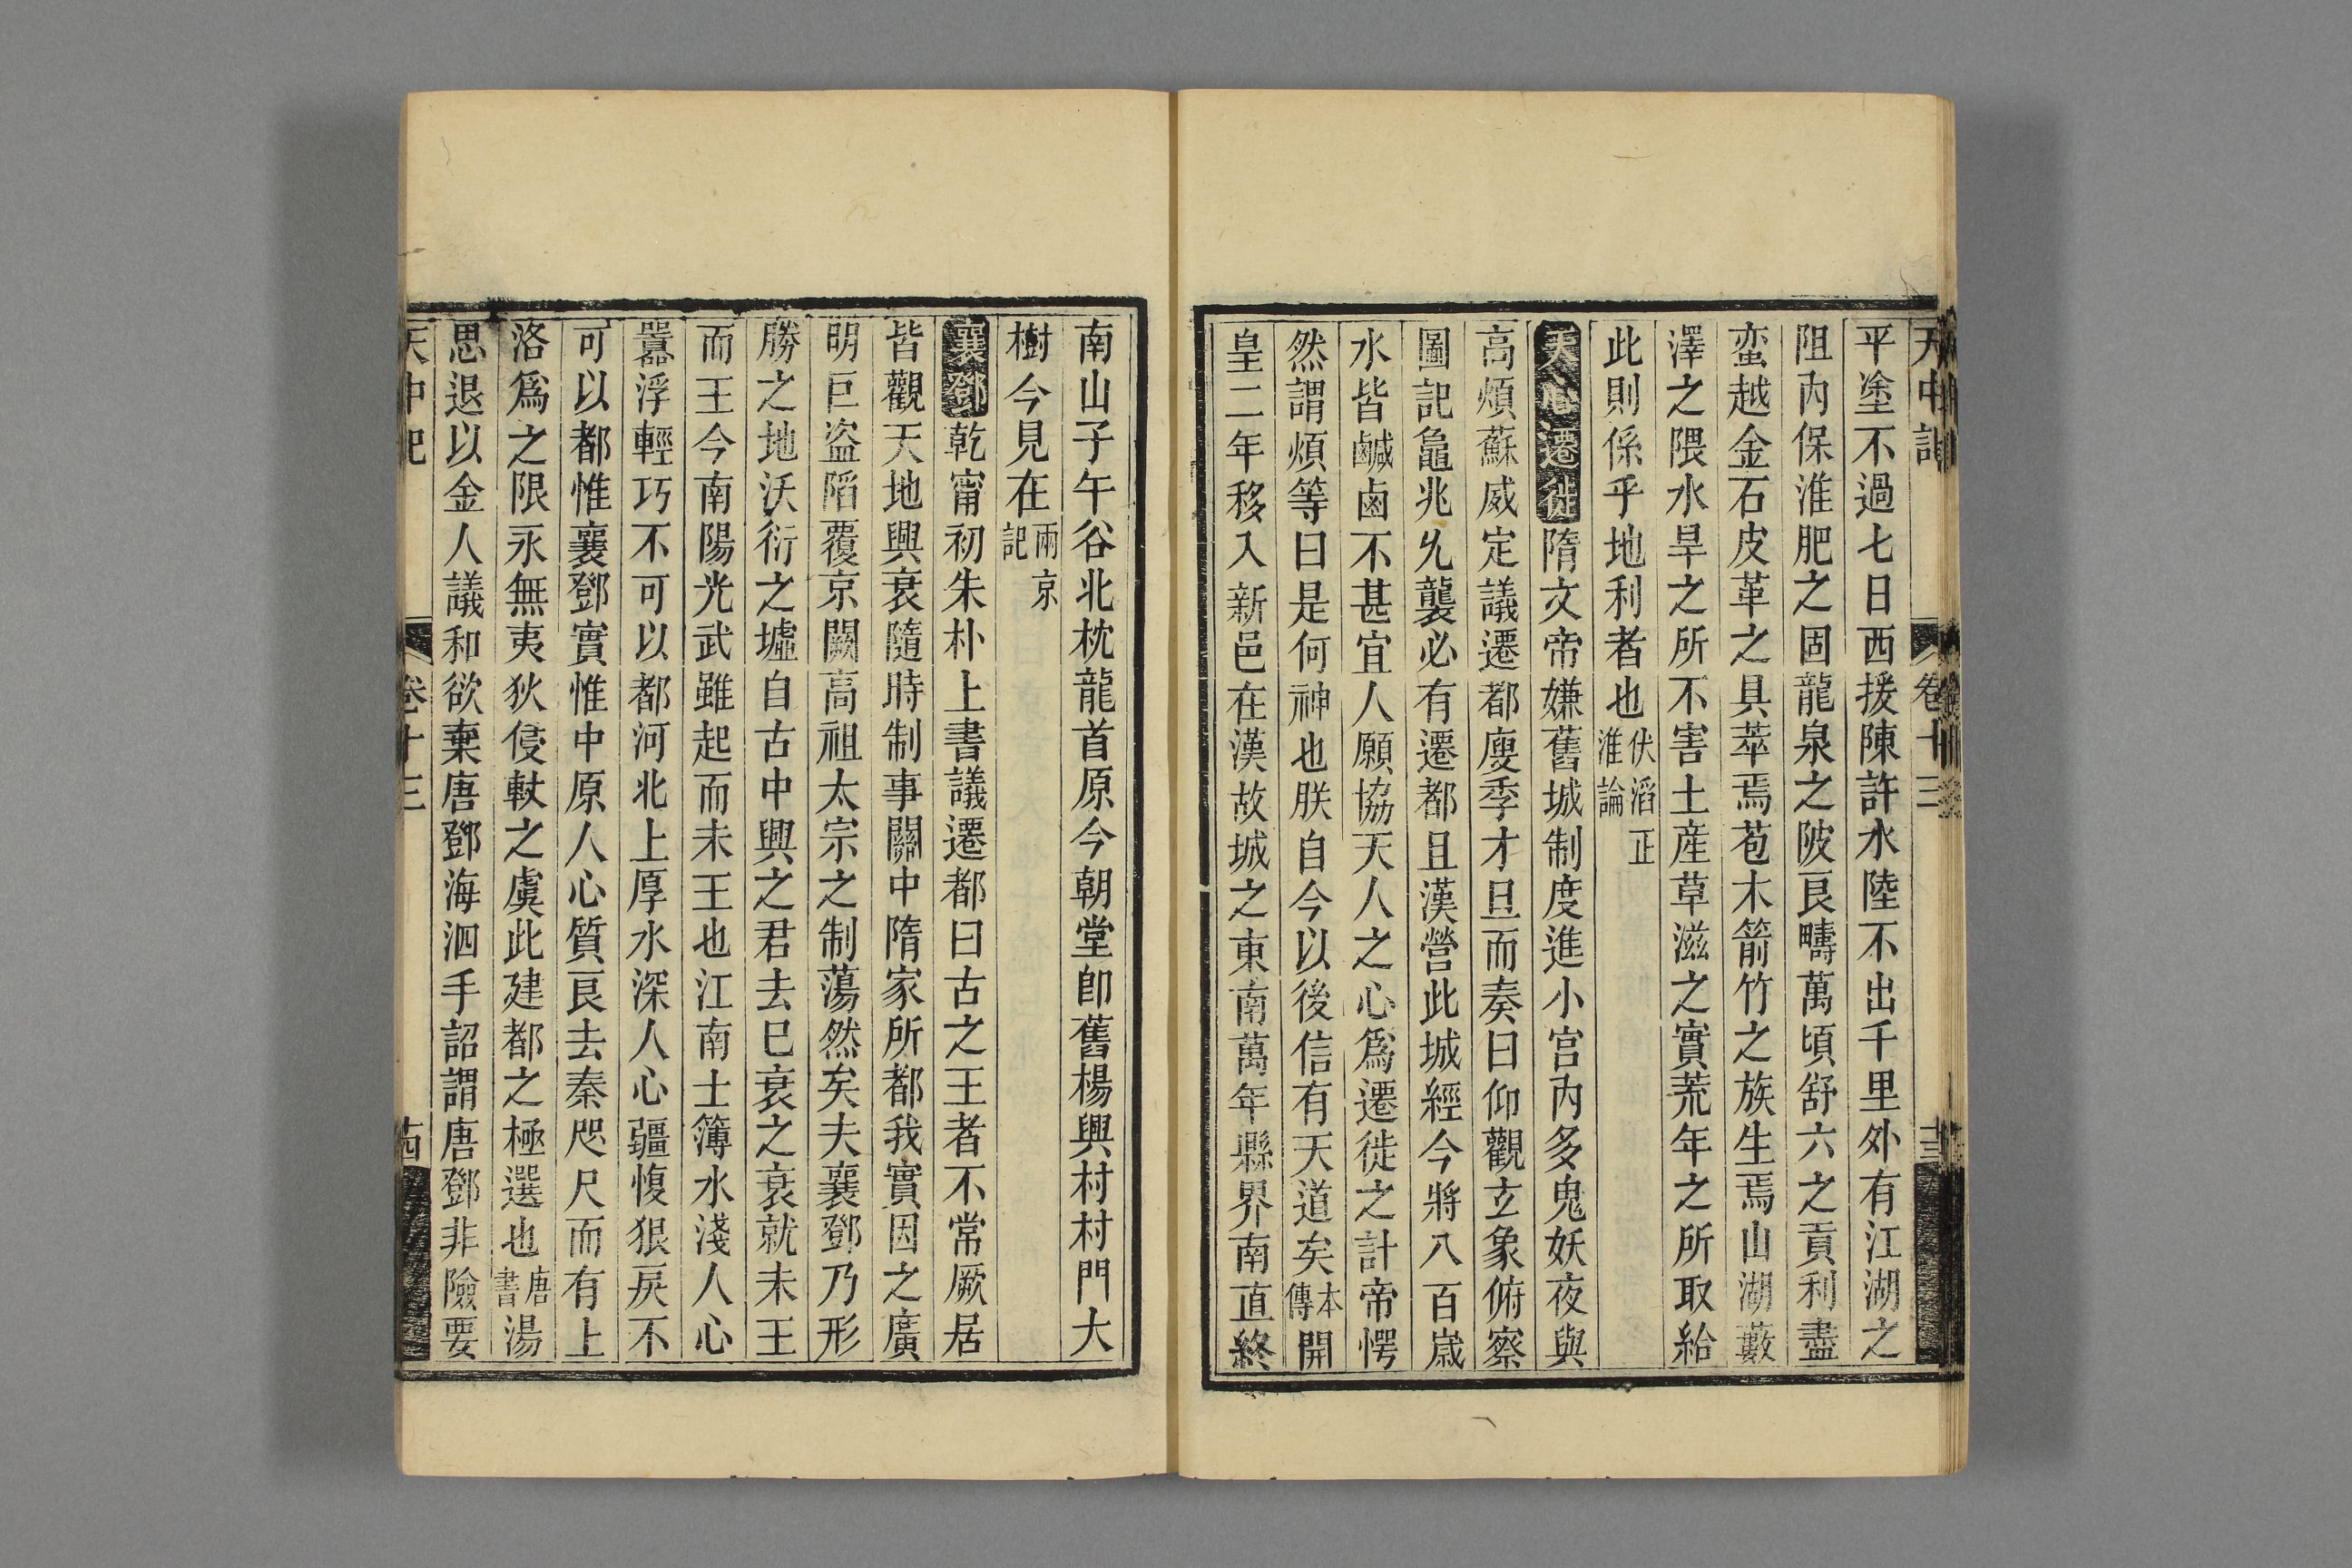 天中記 卷十三 十三
平塗不過七日西援陳許水陸不出千里外有江湖之
阻内保淮肥之固龍泉之陂良疇萬頃舒六之貢利盡
蛮越金石皮革之具萃焉苞木箭竹之族生焉山湖藪
澤之隈水旱之所不害土産草滋之實荒年之所取給
此則係乎地利者也伏滔正淮論
天心遷徙隋文帝嫌舊城制度進小宫内多鬼妖夜與
高熲蘇威定議遷都庾季才旦而奏曰仰觀玄象俯察
圖記龜兆允襲必有遷都且漢營此城經今將八百歲
水皆鹹鹵不甚宜人願協天人之心爲遷徙之計帝愕
然謂熲等曰是何神也朕自今以後信有天道矣本傳開
皇二年移入新邑在漢故城之東南萬年縣界南直終
南山子午谷北枕龍首原今朝堂即舊楊興村村門大
樹今見在兩京記
襄鄧乾甯初朱朴上書議遷都曰古之王者不常厥居
皆觀天地興衰隨時制事關中隋家所都我實因之廣
明巨盗陷覆京闕高祖太宗之制蕩然矣夫襄鄧乃形
勝之地沃衍之墟自古中興之君去已衰之衰就未王
而王今南陽光武雖起而未王也江南土簿水淺人心
囂浮輕巧不可以都河北土厚水深人心彊愎狠戾不
可以都惟襄鄧實惟中原人心質良去秦咫尺而有上
洛爲之限永無夷狄侵軼之虞此建都之極選也唐書湯
思退以金人議和欲棄唐鄧海泗手詔謂唐鄧非險要
天中記 卷十三 十四